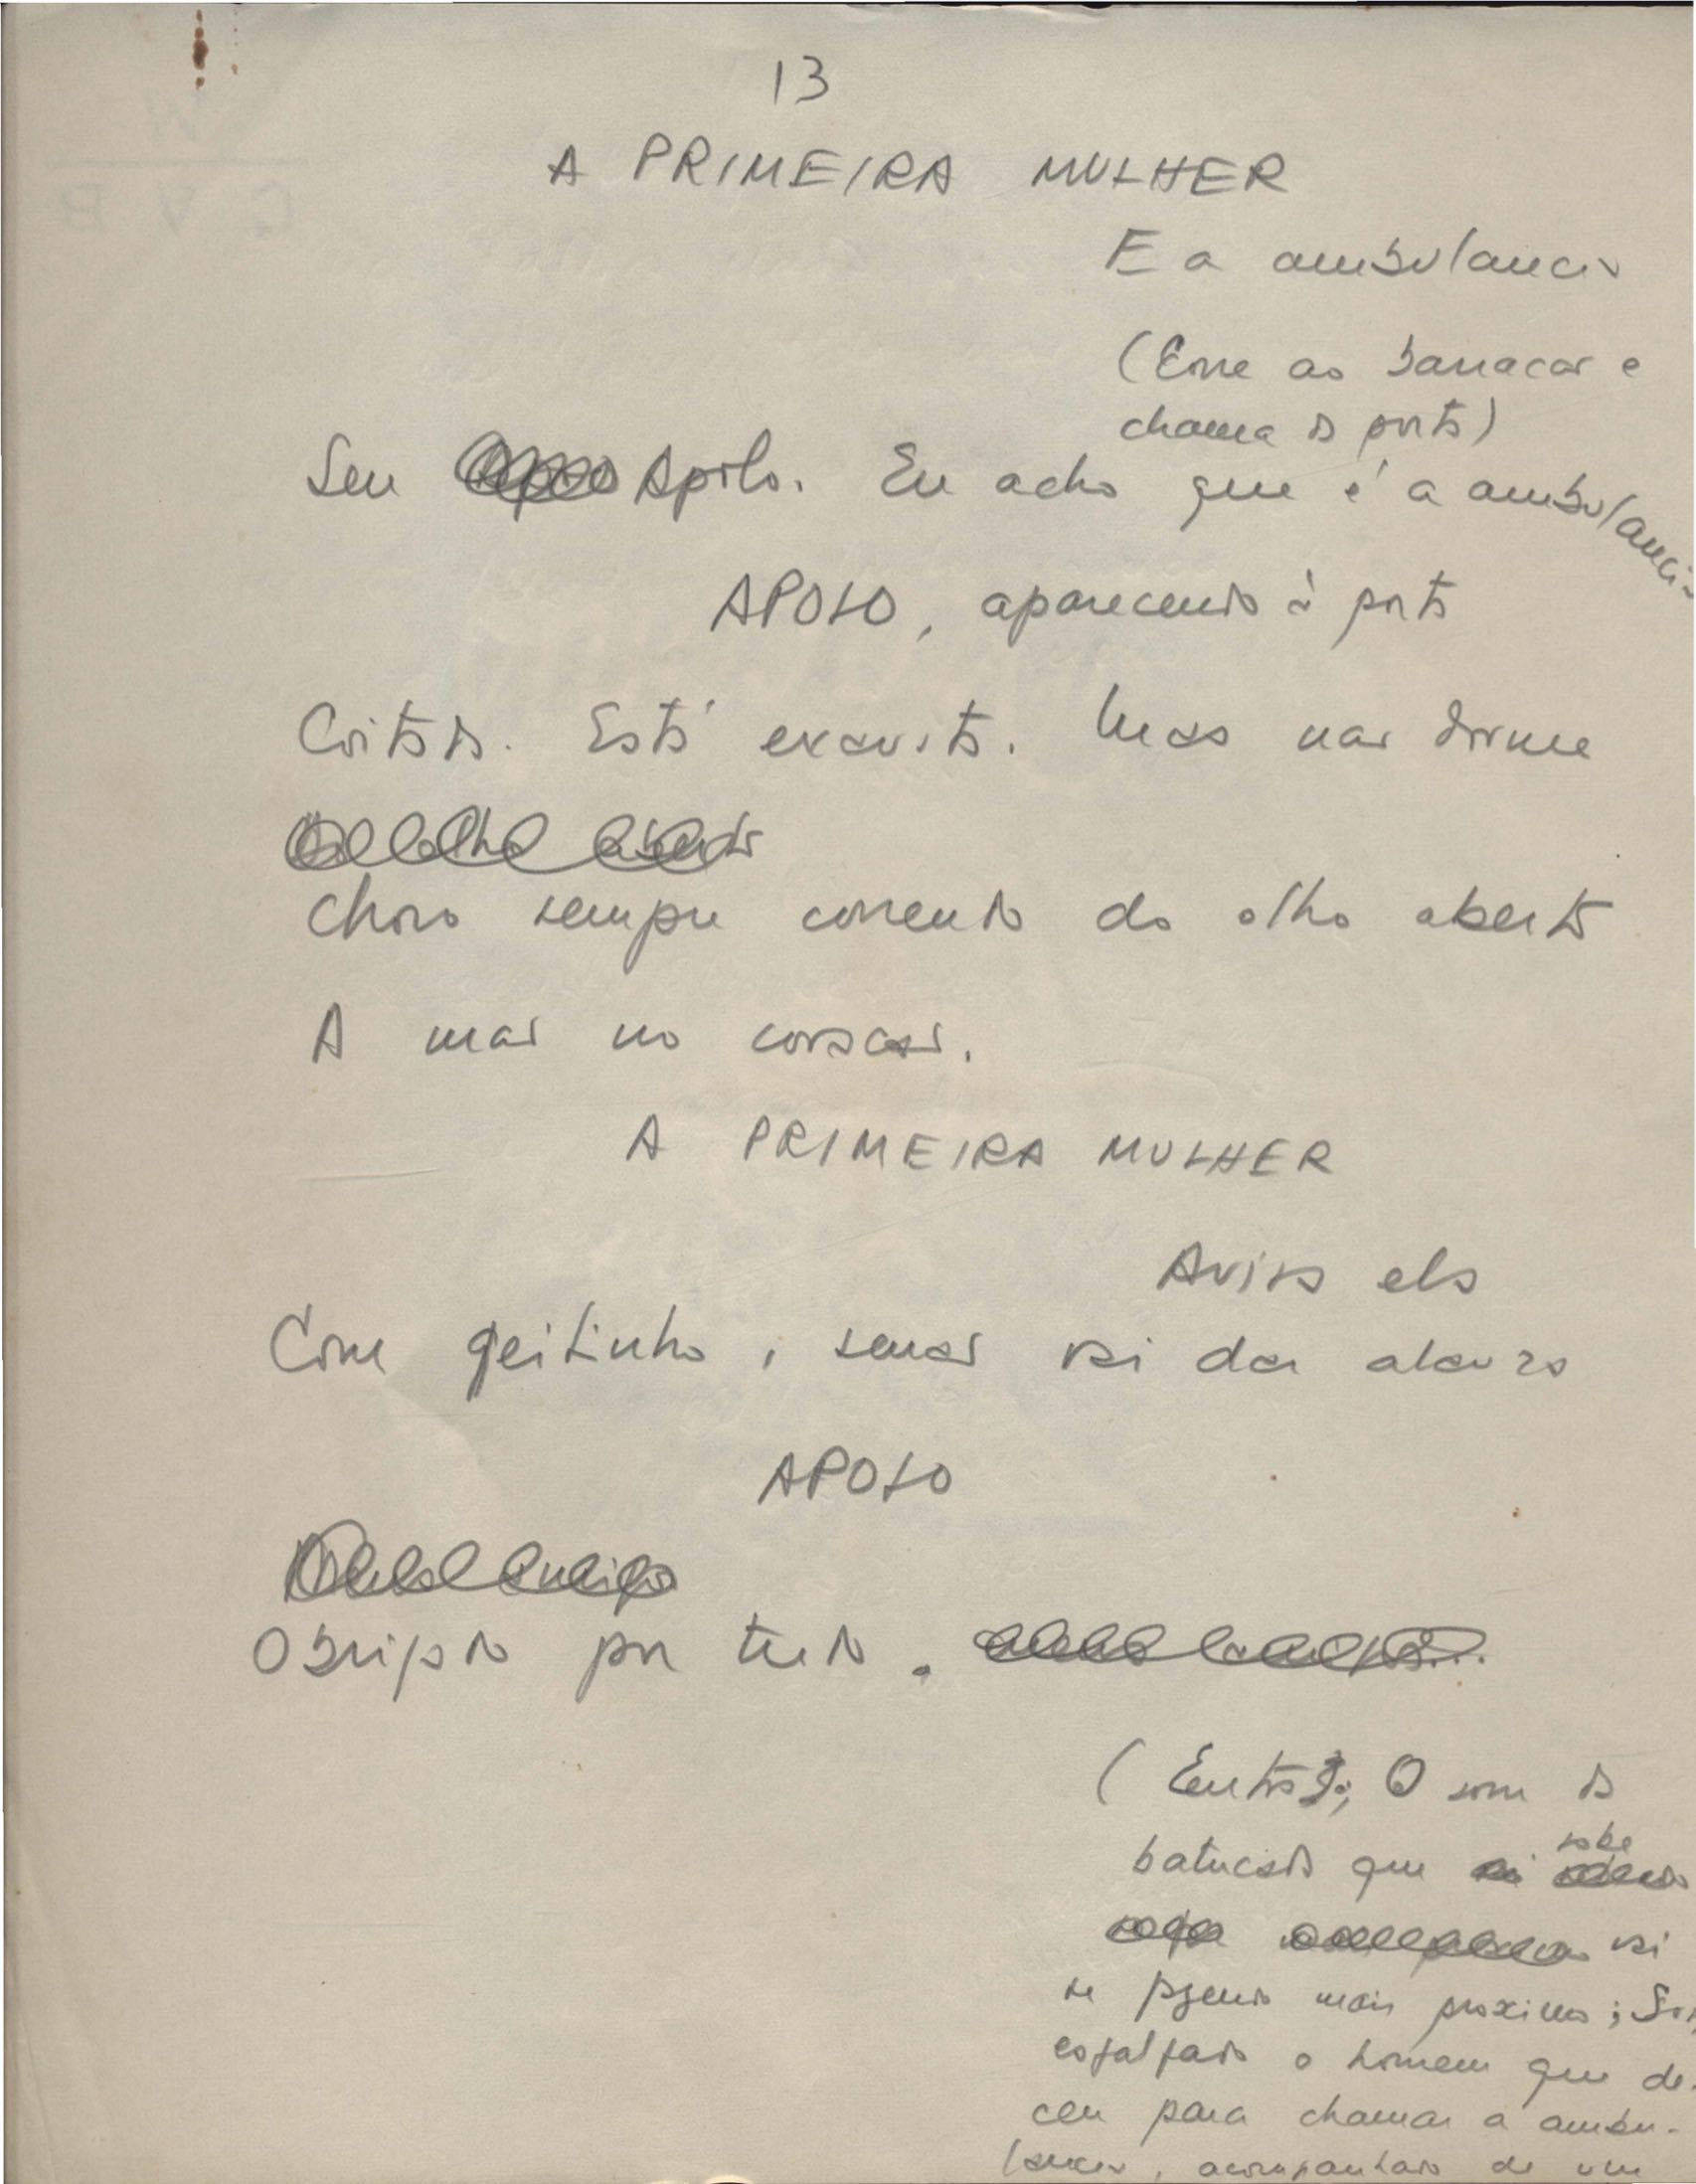 13
A PRIMEIRA MULHER
E a ambulancia
(Corre ao barracão e
chama da porta)
Seu Apolo. Eu acho que é a ambulancia
APOLO, aparecendo à porta
Coitada. Está exausta. Mas não dorme
Choro sempre correndo do olho aberto
A mão no coração.
A PRIMEIRA MULHER
Avisa ela
Com geitinho, senão vai dar alauza
APOLO
Obrigado por tudo.
(Entra; O som da
batucada que sobe
vai
se fazendo mais proximo;
esfalfado o homem que de-
ceu para chamar a ambu-
lancia, acompanhado de um